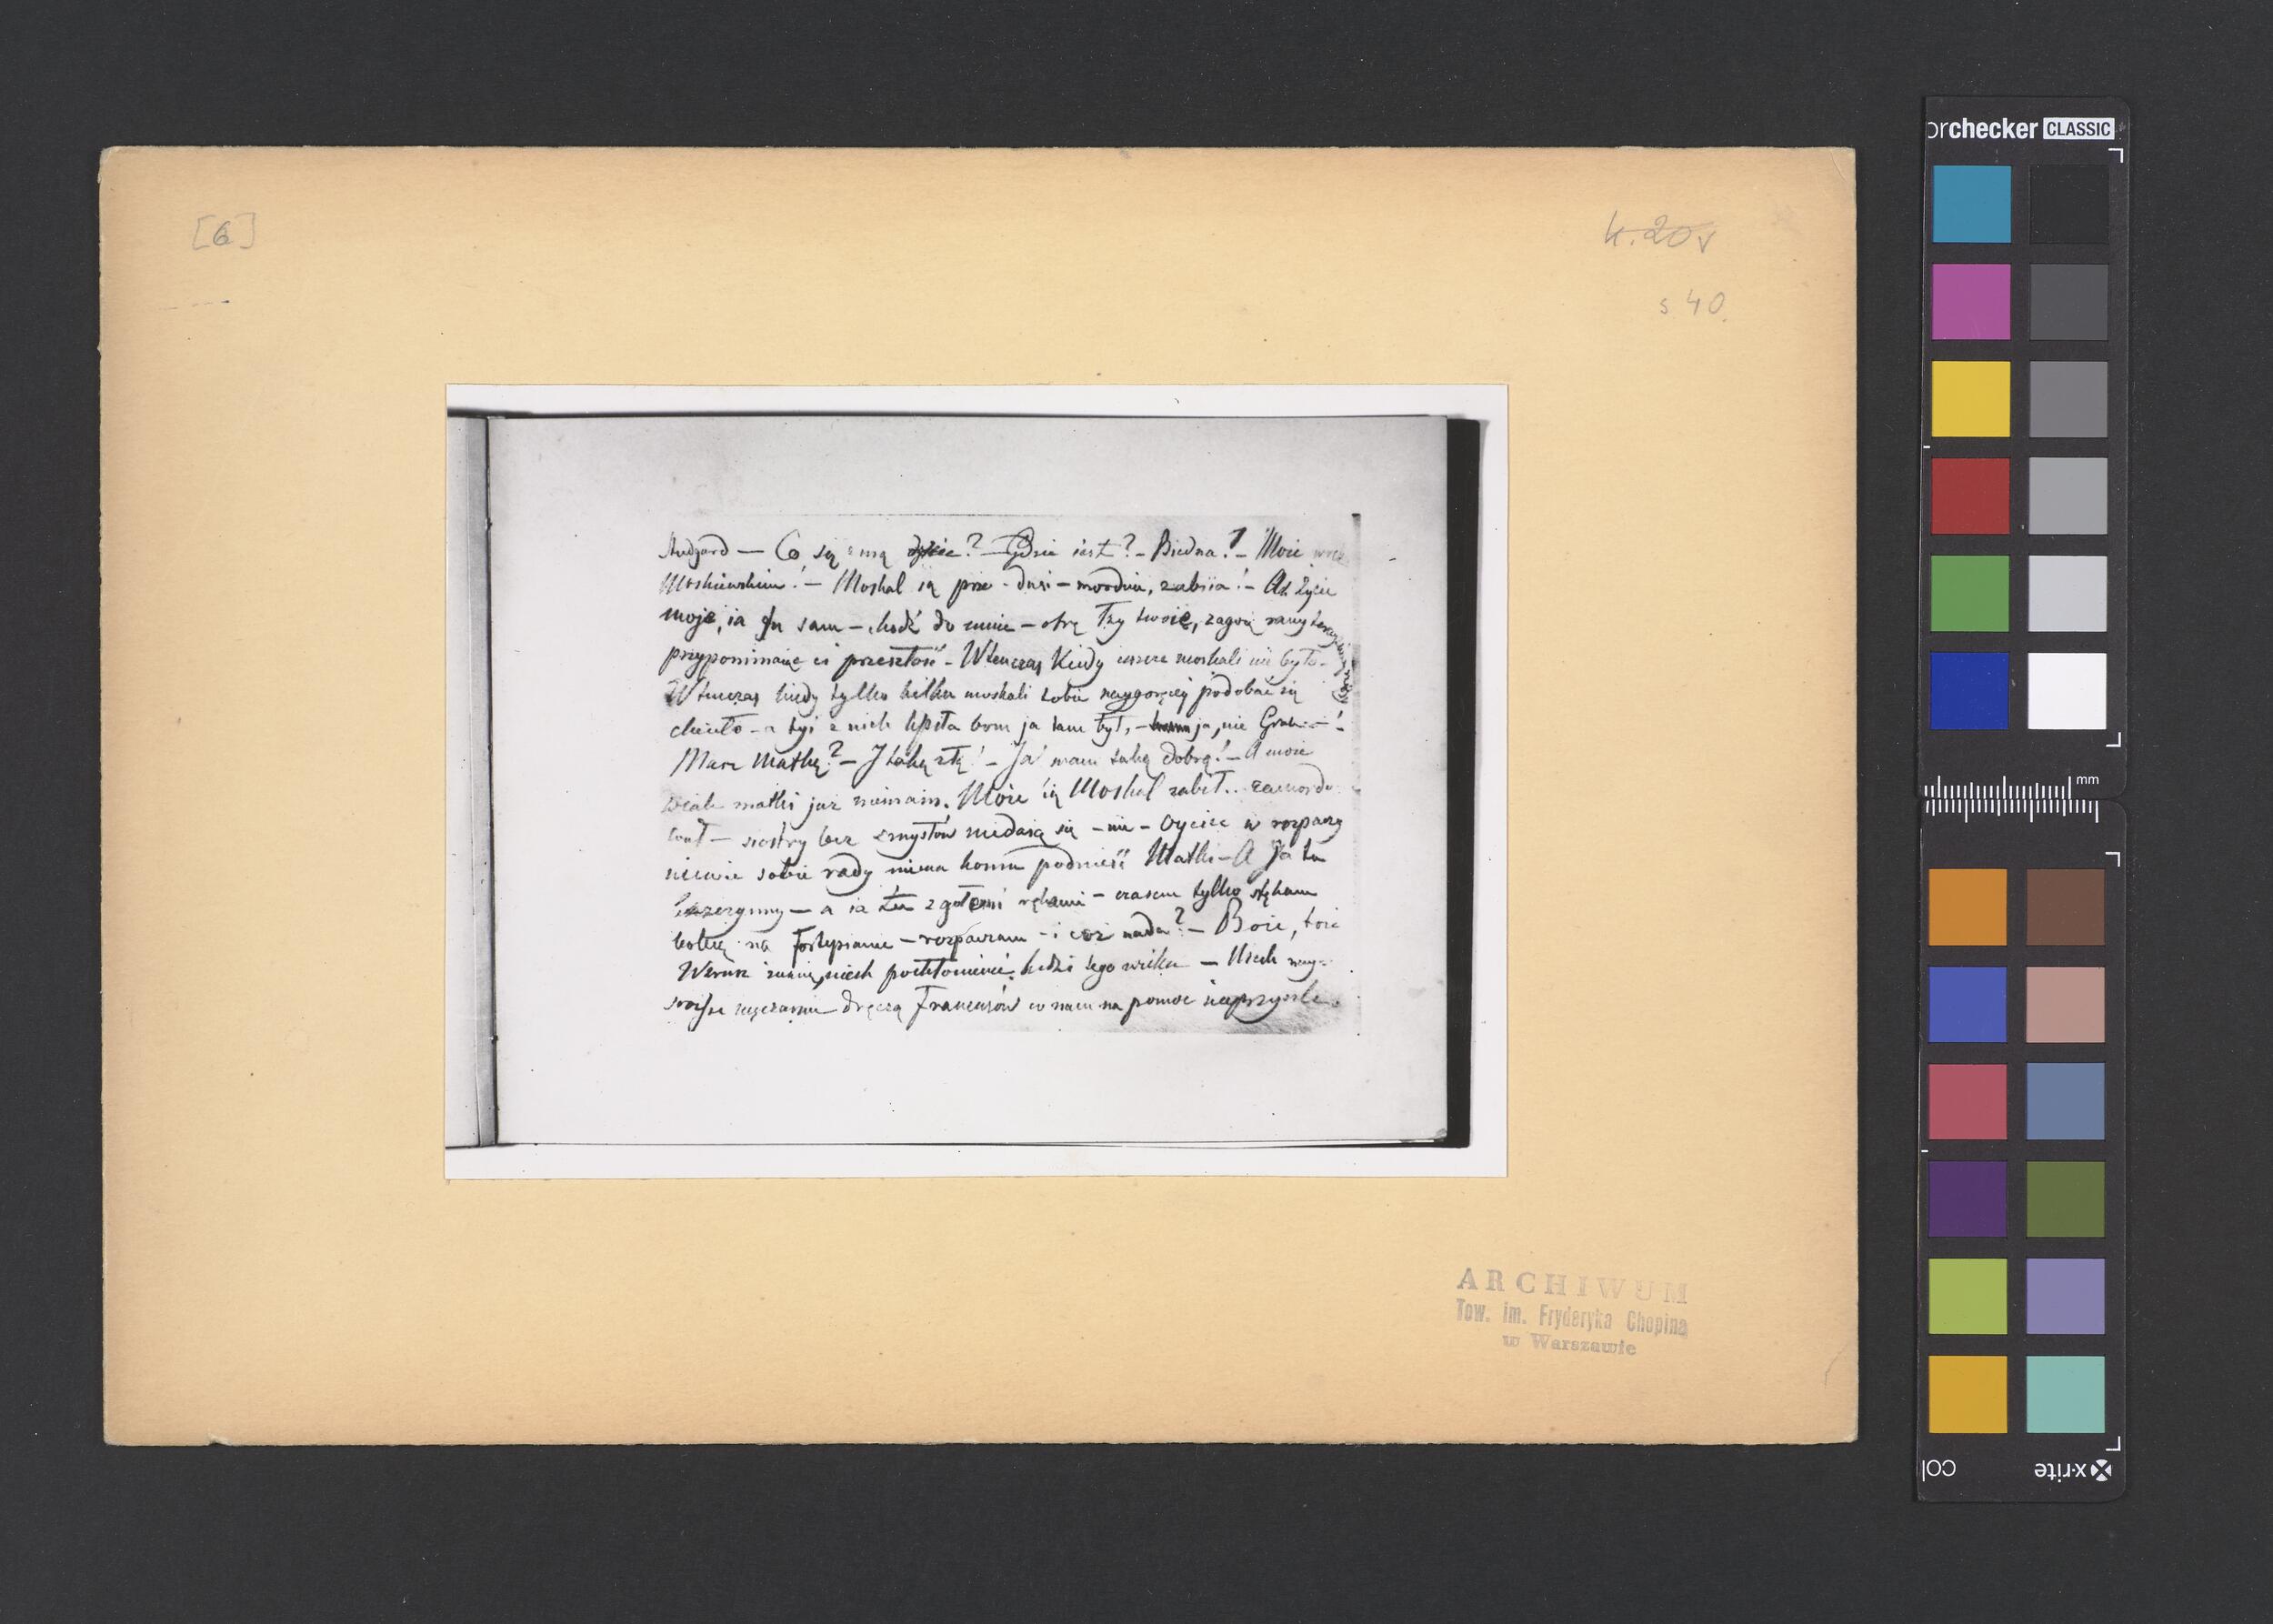 [6]
k. 20v
s 40.
Studgard — Co się z nią dzieie? — Gdzie iest? — Biedna! — Może w ręk
Moskiewskim! — Moskal ią prze - dusi — morduie, zabiia! — Ah Życie
moje, ia tu sam — chodź do mnie — otrę łzy twoie, zagoię rany
przypominaiąc ci przeszłość — Wtenczas Kiedy ieszcze moskali nie było —
Wtenczas kiedy tylko kilku moskali tobie naygoręcej podobać się
chciało — a tyś z nich kpiła bom ja tam był, — ja, nie Grab
Masz Matkę? — I taką złą! — Ja mam taką dobrą! — A może
wcale matki już niemam. Może ią Moskal zabił.. zamordo
wał — siostry bez zmysłów niedaią się — nie — oyciec w rozpaczy
niewie sobie rady niema komu podnieść Matki — A Ja tu
bezczynny — a ia tu z gołemi rękami — czasem tylko stękam
boleię na fortepianie — rozpaczam — i coż nada? — Boże, Boże
Wzrusz ziemię, niech pochłonie ludzi tego wieku — Niech nay-
sroższe męczarnie dręczą Francuzów co nam na pomoc nieprzyszli.
ARCHIWUM
Tow. im. Fryderyka Chopina
w Warszawie
orchecker CLASSIC
mm
x-rite
col